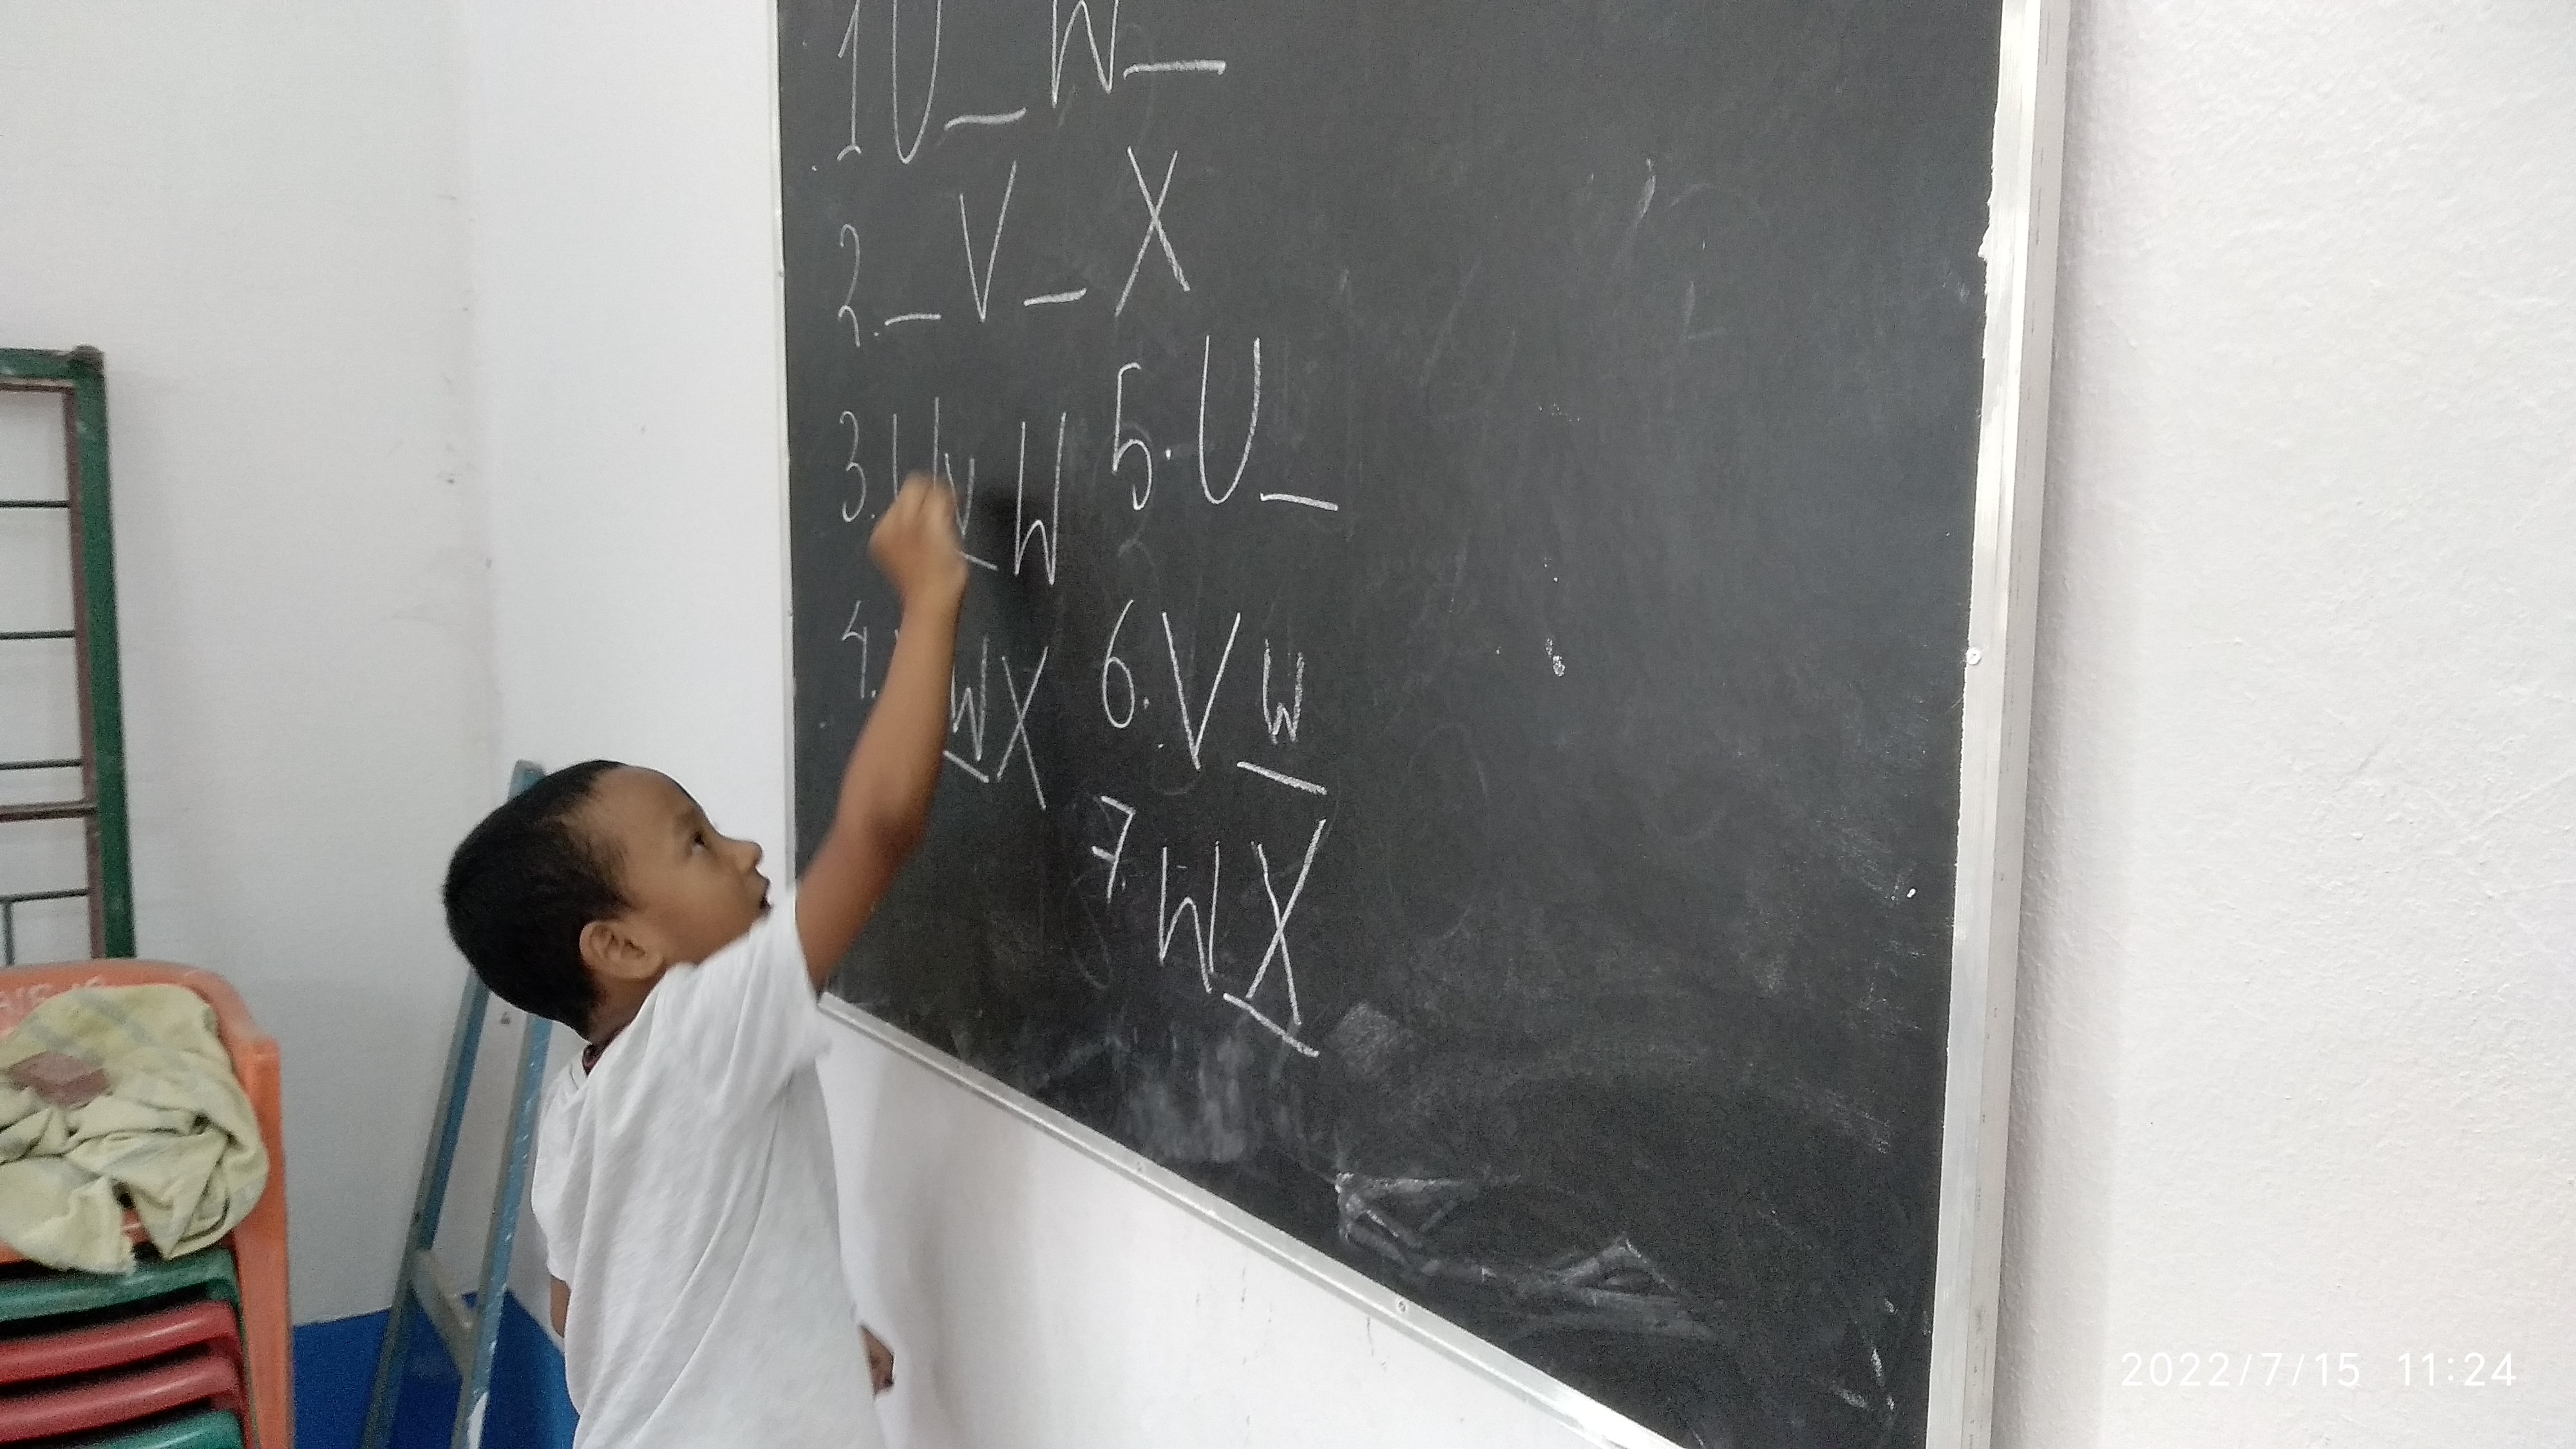 1 U _ W _
2. _ V _ X
3. U V W
4. W X
5. U _
6. V W
7. W X
2022/7/15 11:24